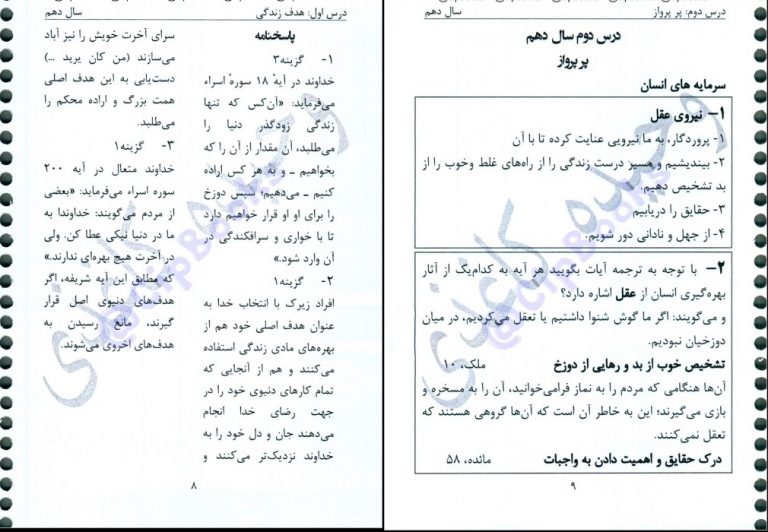 درس دوم: پر پرواز
سال دهم
درس دوم سال دهم
پر پرواز
سرمایه های انسان
۱– نیروی عقل
۱- پروردگار، به ما نیرویی عنایت کرده تا با آن
۲- بیندیشیم و مسیر درست زندگی را از راه‌های غلط وخوب را از
بد تشخیص دهیم.
۳- حقایق را دریابیم
۴- از جهل و نادانی دور شویم.
۲– با توجه به ترجمه آیات بگویید هر آیه به کدام‌یک از آثار
بهره‌گیری انسان از عقل اشاره دارد؟
و می‌گویند: اگر ما گوش شنوا داشتیم یا تعقل می‌کردیم، در میان
دوزخیان نبودیم.
تشخیص خوب از بد و رهایی از دوزخ ملک، ۱۰
آن‌ها هنگامی که مردم را به نماز فرامی‌خوانید، آن را به مسخره و
بازی می‌گیرند؛ این به خاطر آن است که آن‌ها گروهی هستند که
تعقل نمی‌کنند.
درک حقایق و اهمیت دادن به واجبات مائده، ۵۸
۹
درس اول: هدف زندگی
سال دهم
پاسخنامه
۱- گزینه۳
خداوند در آیهٔ ۱۸ سورهٔ اسراء
می‌فرماید: «آن‌کس که تنها
زندگی زودگذر دنیا را
می‌طلبد، آن مقدار از آن را که
بخواهیم ـ و به هر کس اراده
کنیم ـ می‌دهیم؛ سپس دوزخ
را برای او او قرار خواهیم دارد
تا با خواری و سرافکندگی در
آن وارد شود.»
۲- گزینه۱
افراد زیرک با انتخاب خدا به
عنوان هدف اصلی خود هم از
بهره‌های مادی زندگی استفاده
می‌کنند و هم از آنجایی که
تمام کارهای دنیوی خود را در
جهت رضای خدا انجام
می‌دهند جان و دل خود را به
خداوند نزدیک‌تر می‌کنند و
سرای آخرت خویش را نیز آباد
می‌سازند (من کان یرید ...)
دست‌یابی به این هدف اصلی
همت بزرگ و اراده محکم را
می‌طلبد.
۳- گزینه۱
خداوند متعال در آیه ۲۰۰
سوره اسراء می‌فرماید: «بعضی
از مردم می‌گویند: خداوندا به
ما در دنیا نیکی عطا کن. ولی
در آخرت هیچ بهره‌ای ندارند.»
که مطابق این آیه شریفه، اگر
هدف‌های دنیوی اصل قرار
گیرند، مانع رسیدن به
هدف‌های اخروی می‌شوند.
۸